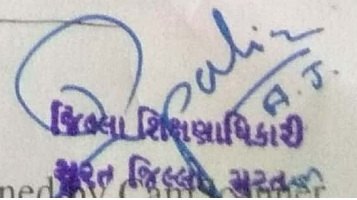 A. J.
જિલ્લા શિક્ષણાધિકારી
સુરત જિલ્લો સુરત
ned by CamScanner